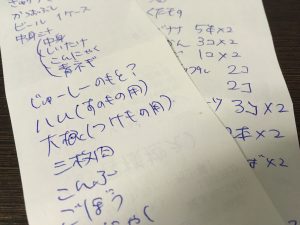 かつおぶし
ビール 1ケース
中身汁
中身
しいたけ
こんにゃく
青ネギ
じゅーしーのもと?
ハム(すのもの用)
大根(つけもの用)
三枚肉
こんぶ
ごぼう
くだもの
バナナ 5本×2
3コ×2
1コ×2
2コ
2コ
3コ×2
本×2
×2